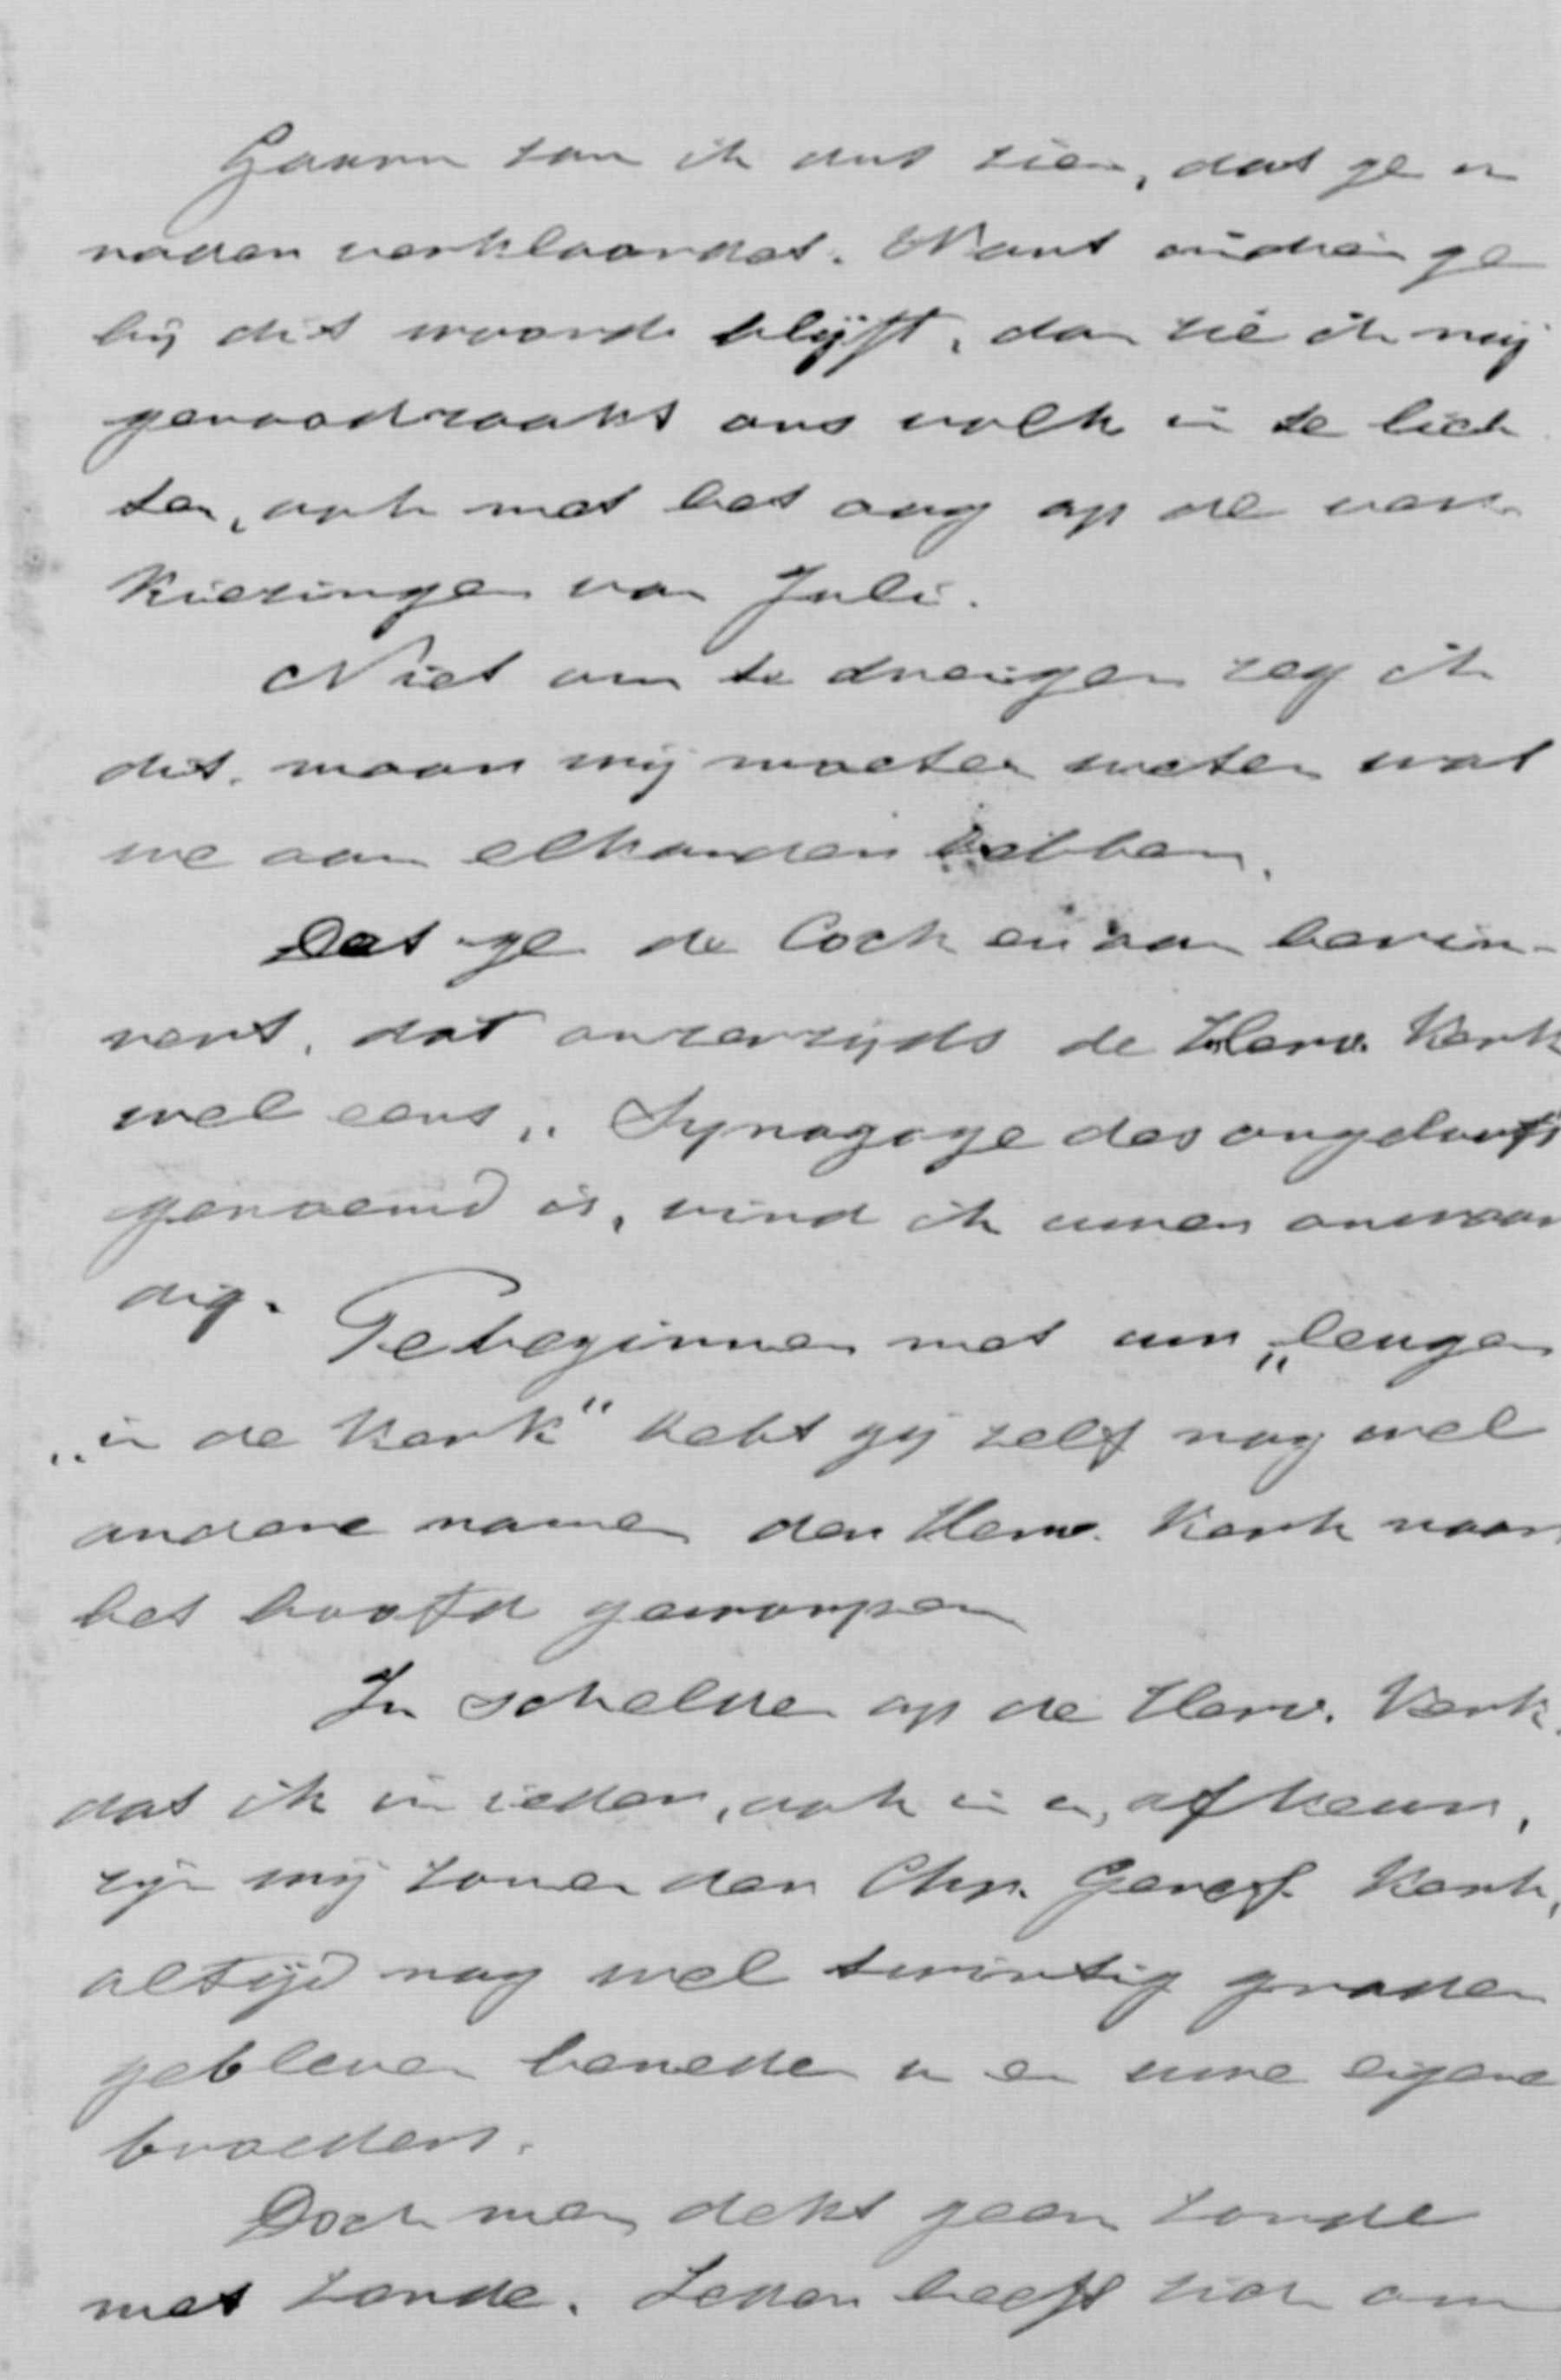 Gaarne zou ik dus zien, dat ge u
nader verklaardet. Want indien ge
bij dit woord blijft, dan zie ik mij
genoodzaakt ons volk in te lich
ten, ook met het oog op de ver-
kiezingen van Juli.
Niet om te dreigen zeg ik
dit, maar wij moeten weten wat
we aan elkander hebben.
Dat ge de Cock er aan herin-
nert, dat onzerzijds de Herv. Kerk
wel eens „Synagoge des ongeloofs
genoemd is, vind ik uwer onwaar
dig.
Te beginnen met uw „leugen
„in de Kerk" hebt gij zelf nog wel
andere namen der Herv. Kerk naar
het hoofd geworpen
In schelden op de Herv. Kerk,
dat ik in ieder, ook in u, afkeur,
zijn wij zonen der Chr. Geref. Kerk,
altijd nog wel twintig graden
gebleven beneden u en uwe eigene
broeders.
Doch men dekt geen zonde
met zonde. Ieder heeft zich om